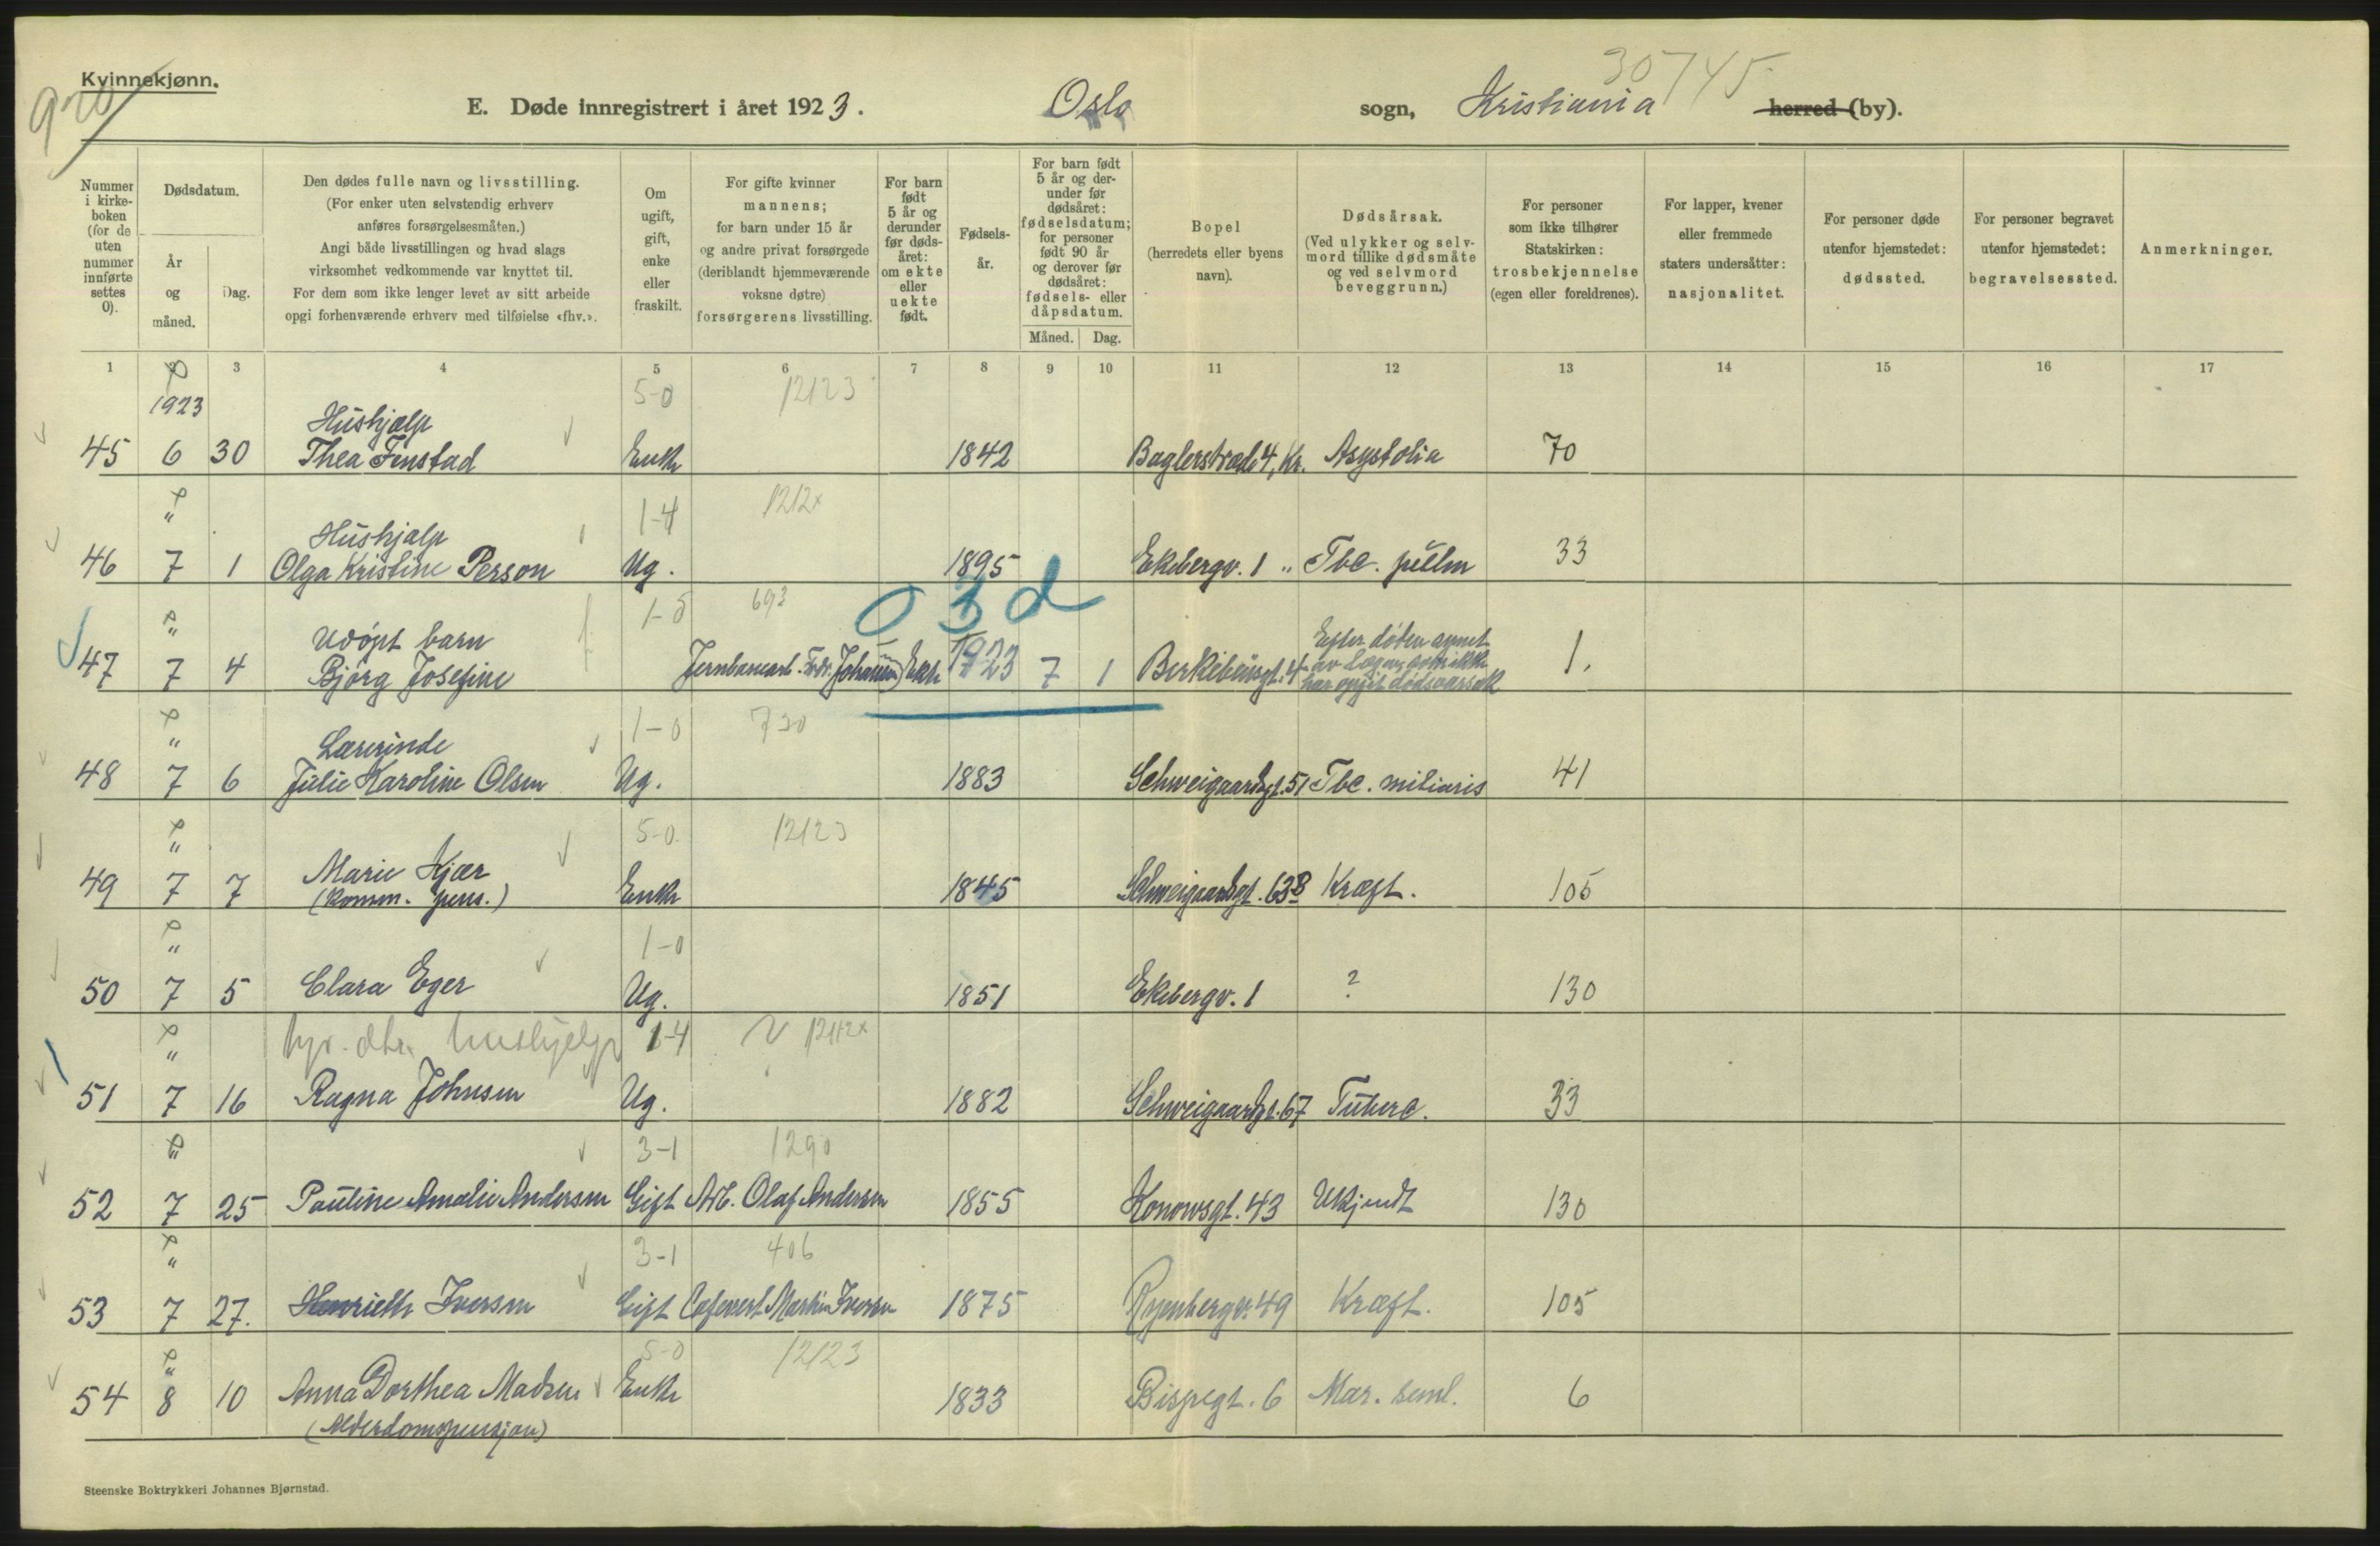 Kvinnekjønn.
920
30745
E. Døde innregistrert i året 1923. Oslo sogn, Kristiania herred (by).
Nummer i kirke- boken (for de uten nummer innførte settes 0).
Dødsdatum.
År og måned.
Dag.
Den dødes fulle navn og livsstilling.
(For enker uten selvstendig erhverv
anføres forsørgelsesmåten.)
Angi både livsstillingen og hvad slags
virksomhet vedkommende var knyttet til.
For dem som ikke lenger levet av sitt arbeide
opgi forhenværende erhverv med tilføielse «fhv.».
Om ugift, gift, enke eller fraskilt.
For gifte kvinner
mannens;
for barn under 15 år
og andre privat forsørgede
(deriblandt hjemmeværende
voksne døtre)
forsørgerens livsstilling.
For barn født 5 år og derunder før døds- året: om ekte eller uekte født.
Fødsels- år.
For barn født 5 år og der- under før dødsåret: fødselsdatum; for personer født 90 år og derover før dødsåret: fødsels- eller dåpsdatum.
Måned. Dag.
Bopel
(herredets eller byens
navn).
Dødsårsak.
(Ved ulykker og selv-
mord tillike dødsmåte
og ved selvmord
beveggrunn.)
For personer
som ikke tilhører
Statskirken:
trosbekjennelse
(egen eller foreldrenes).
For lapper, kvener
eller fremmede
staters undersåtter:
nasjonalitet.
For personer døde
utenfor hjemstedet:
dødssted.
For personer begravet
utenfor hjemstedet:
begravelsessted.
Anmerkninger.
1 3 4 5 6 7 8 9 10 11 12 13 14 15 16 17
1923 5-0 12123
Hushjælp
45 6 30 Thea Finstad Enke 1842 Baglerstræde 4, Kr. Asystolia 70
" 1-4 1212x
Hushjælp
46 7 1 Olga Kristine Person Ug. 1895 Ekebergv. 1 " Tbc. pulm 33
03d
" 1-5 693
Udöpt barn
47 7 4 Bjørg Josefine 1923 7 1 Birkebeinsgt. 4 Efter døden synet av læge, som ikke har opgit dødsaarsak 1.
" 1-0 730
Lærerinde
48 7 6 Julie Karoline Olsen Ug. 1883 Schweigaardsgt. 51 Tbc. miliaris 41
" 5-0. 12123
49 7 7 Marie Kjær Enke 1845 Schweigaardsgt. 63B Kræft. 105
(komm. pens.)
" 1-0
50 7 5 Clara Eger Ug. 1851 Ekebergv. 1 ? 130
" hushjelp 1-4 1212x
51 7 16 Ragna Johnsen Ug. 1882 Schweigaardsgt. 67 Tuberc. 33
" 3-1 1290
52 7 25 Pauline Amalie Andersen Gift Arb. Olaf Andersen 1855 Konowsgt. 43 Ukjendt 130
" 3-1 406
53 7 27. Henriette Iversen Gift Martin Iversen 1875 Ryenbergv. 49 Kræft. 105
" 5-0 12123
54 8 10 Anna Dorthea Madsen Enke 1833 Bispegt. 6 Mar. senil. 6
(Alderdomspensjon)
Steenske Boktrykkeri Johannes Bjørnstad.